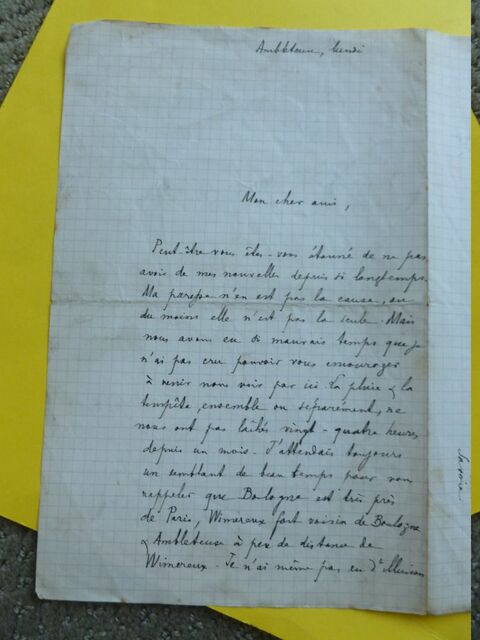 Ambleteuse, lundi
Mon cher ami,
Peut-être vous êtes-vous étonné de ne pas
avoir de mes nouvelles depuis si longtemps.
Ma paresse n'en est pas la cause, ou
du moins elle n'est pas la seule. Mais
nous avons eu si mauvais temps que je
n'ai pas cru pouvoir vous encourager
à venir nous voir par ici. La pluie & la
tempête, ensemble ou séparément, ne
nous ont pas lâchés vingt-quatre heures
depuis un mois. J'attendais toujours
un semblant de beau temps pour vous
rappeler que Boulogne est très près
de Paris, Wimereux fort voisin de Boulogne
& Ambleteuse à peu de distance de
Wimereux. Je n'ai même pas eu d'illusion